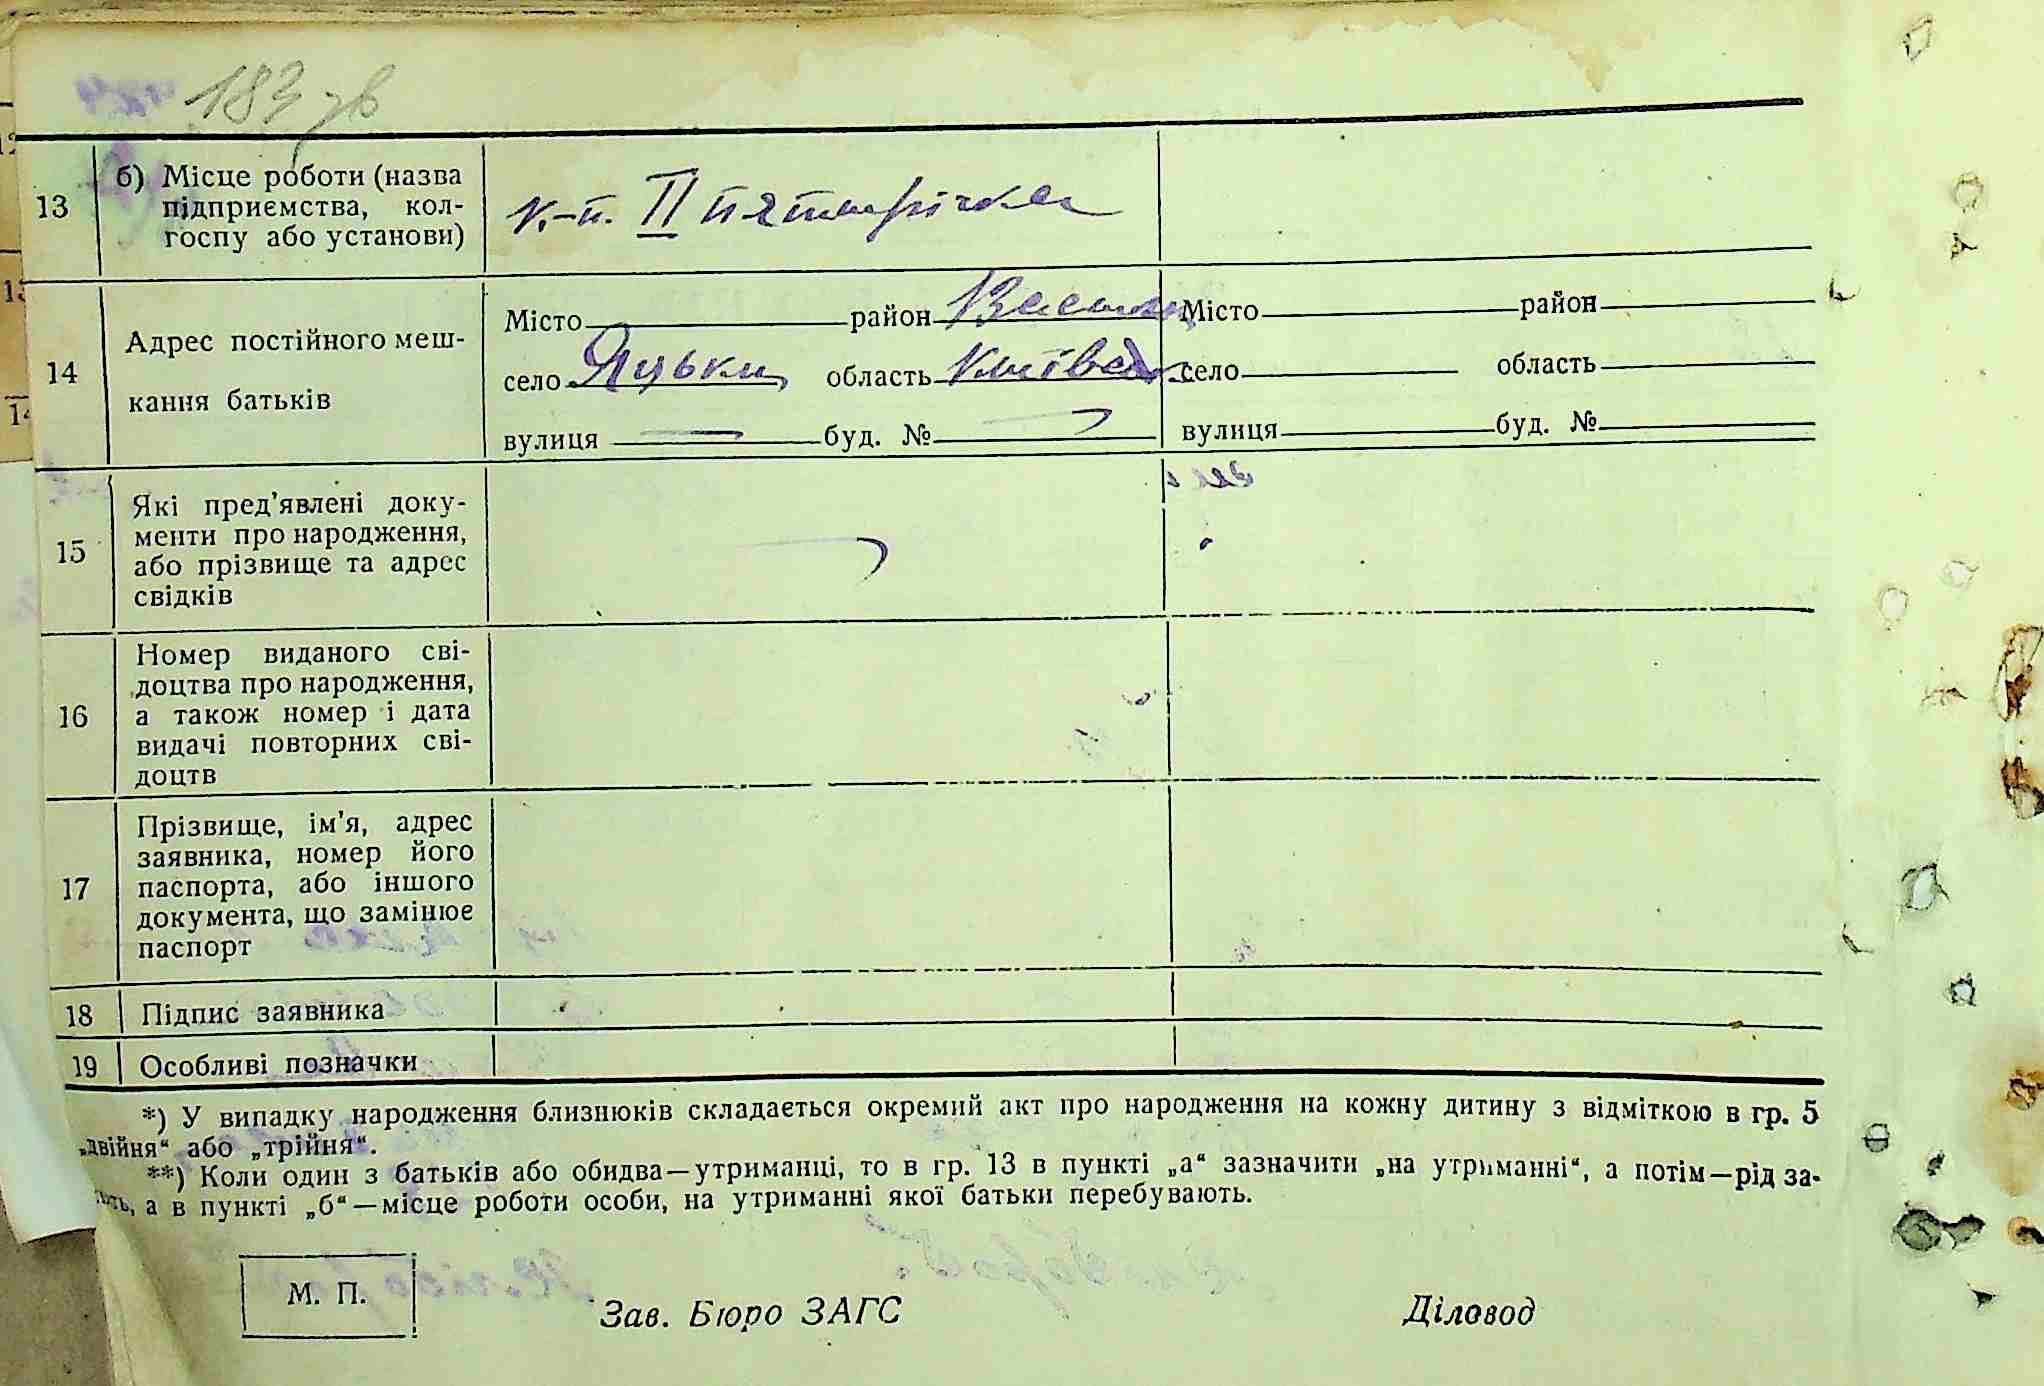 183 зв
13 б) Місце роботи (назва
підприємства, кол-
госпу або установи)
к.-п. II пятирічка
14 Адрес постійного меш-
кання батьків
Місто район Васильк
село Яцьки область Київська
вулиця — буд. № —
Місто район
село область
вулиця буд. №
15 Які пред’явлені доку-
менти про народження,
або прізвище та адрес
свідків
16 Номер виданого сві-
доцтва про народження,
а також номер і дата
видачі повторних сві-
доцтв
17 Прізвище, ім’я, адрес
заявника, номер його
паспорта, або іншого
документа, що замінює
паспорт
18 Підпис заявника
19 Особливі позначки
*) У випадку народження близнюків складається окремий акт про народження на кожну дитину з відміткою в гр. 5
„двійня“ або „трійня“.
**) Коли один з батьків або обидва—утриманці, то в гр. 13 в пункті „а“ зазначити „на утриманні“, а потім—рід за-
а в пункті „б“—місце роботи особи, на утриманні якої батьки перебувають.
М. П.
Зав. Бюро ЗАГС
Діловод